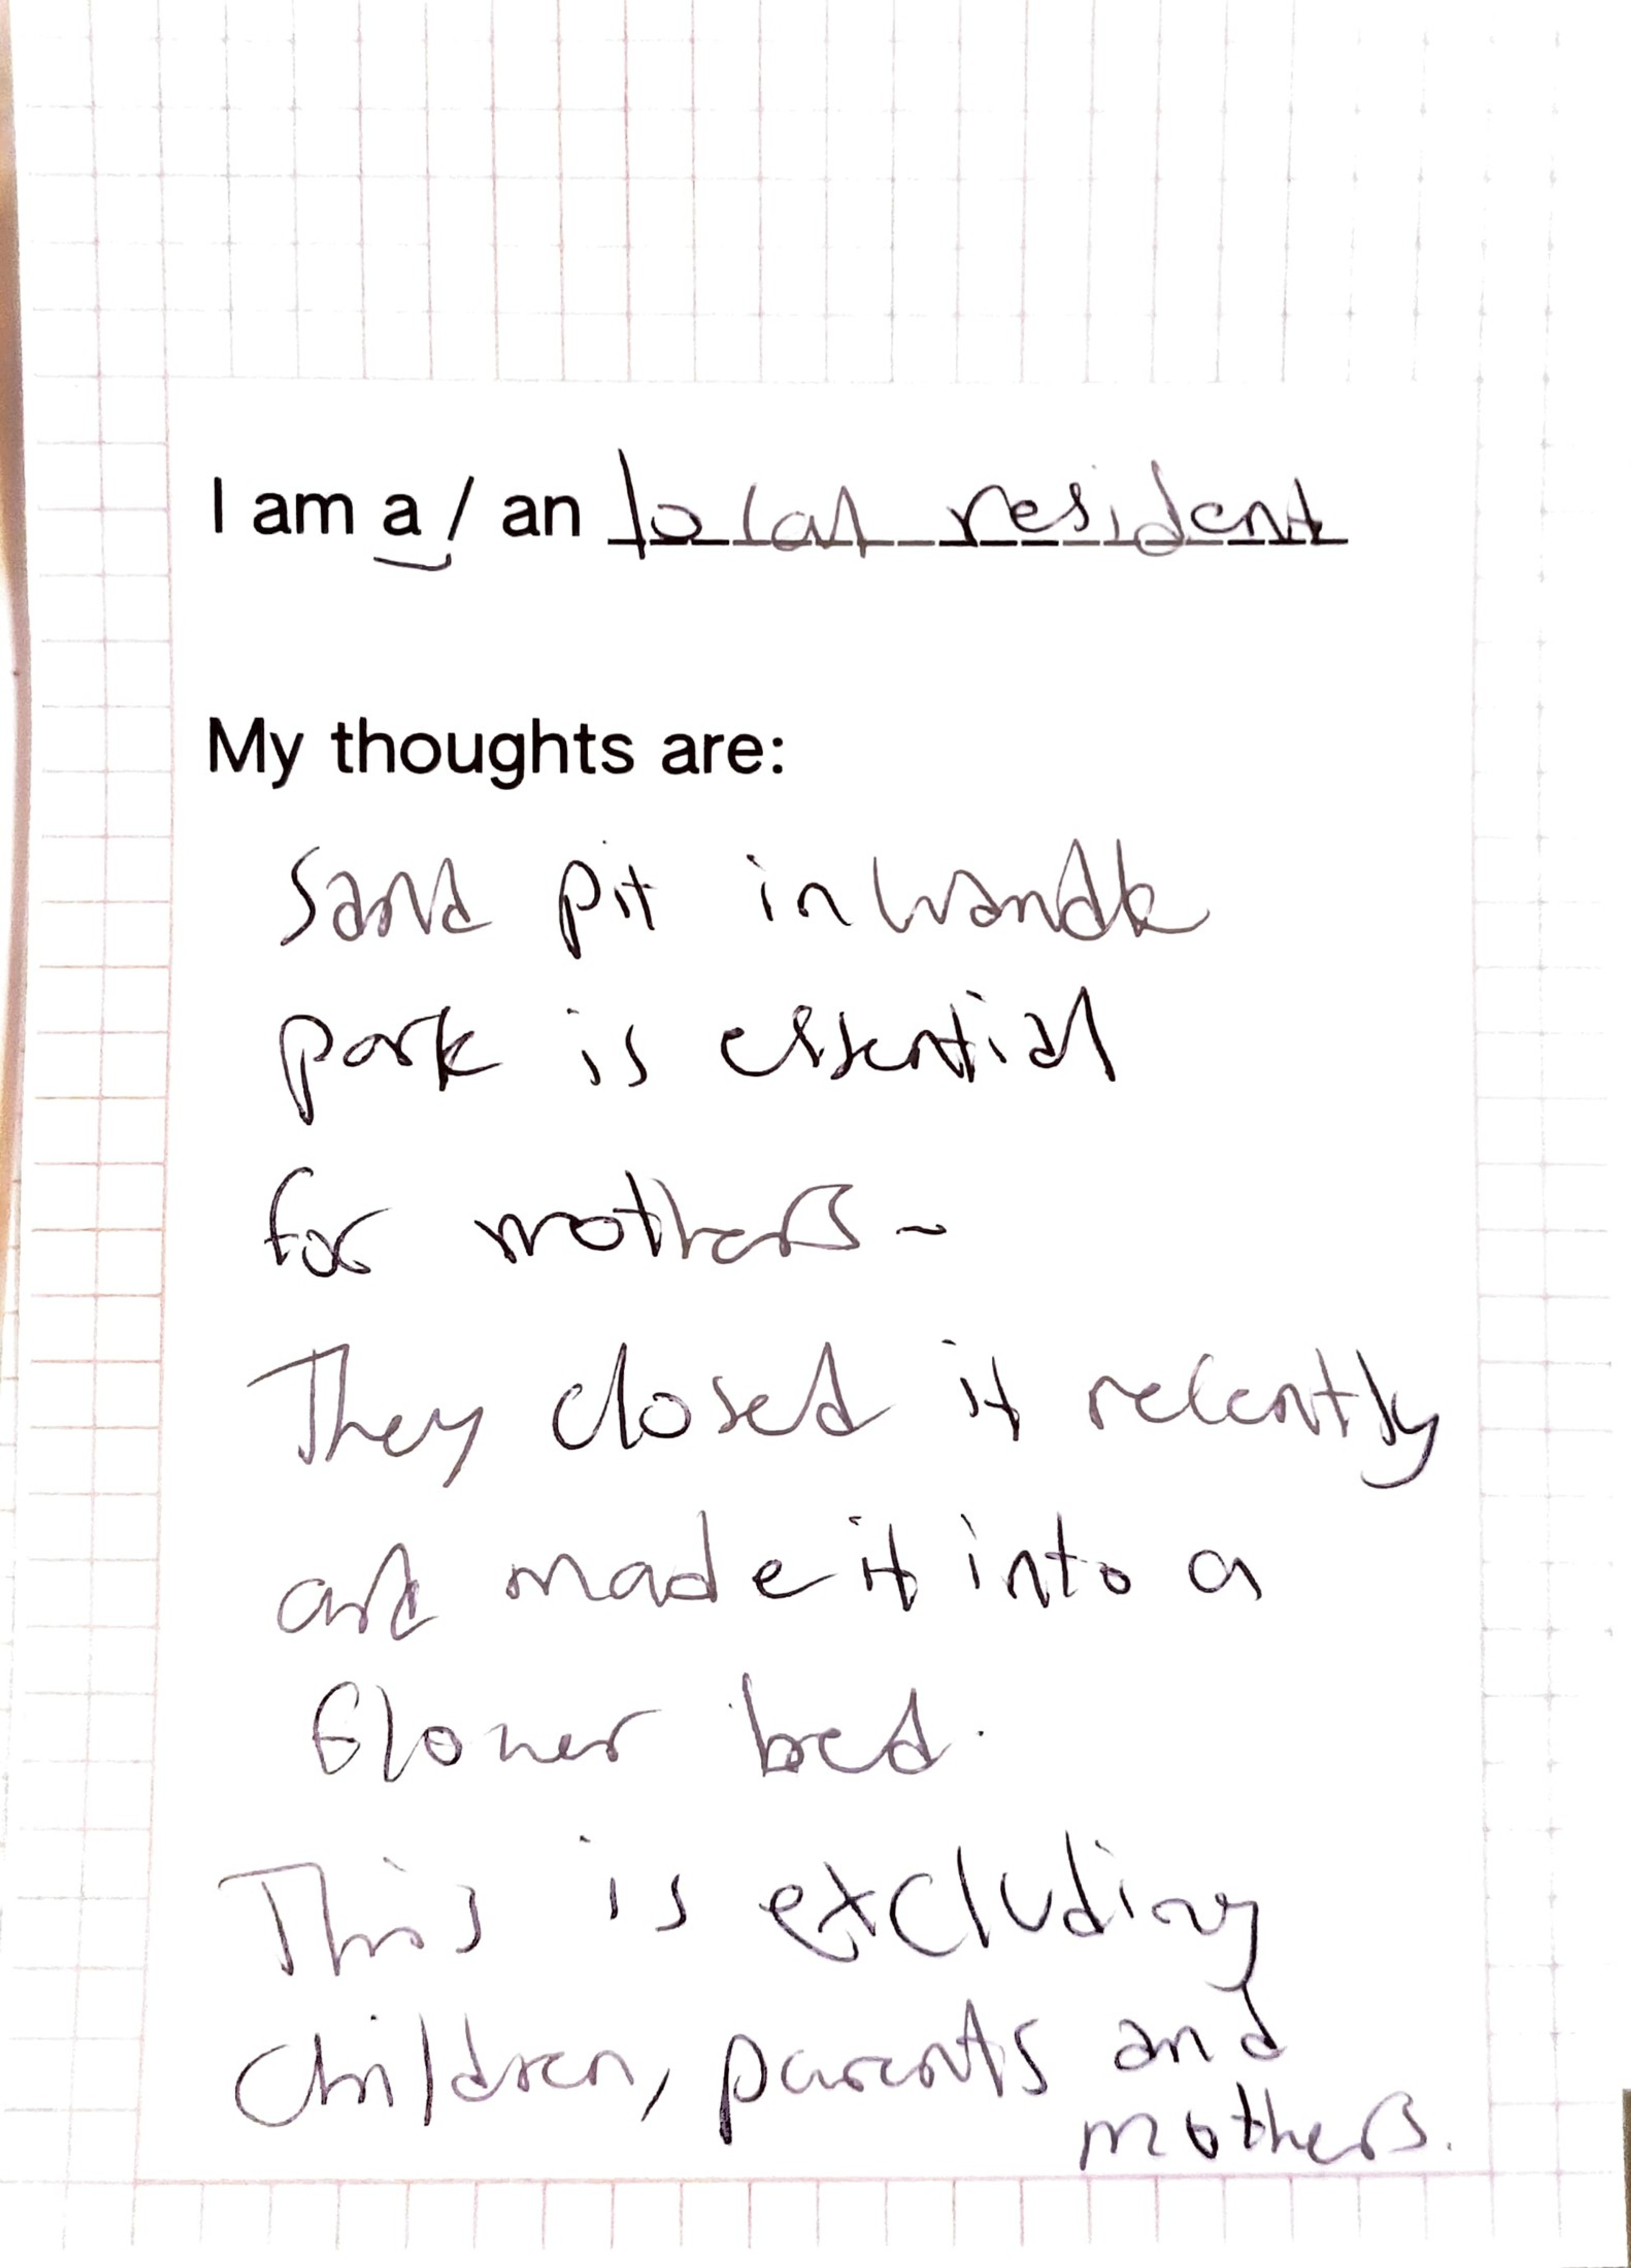 I am a / an local resident
My thoughts are:
Sand pit in Wandle
park is essential
for mothers -
They closed it recently
and made it into a
flower bed.
This is excluding
Children, parents and
mothers.